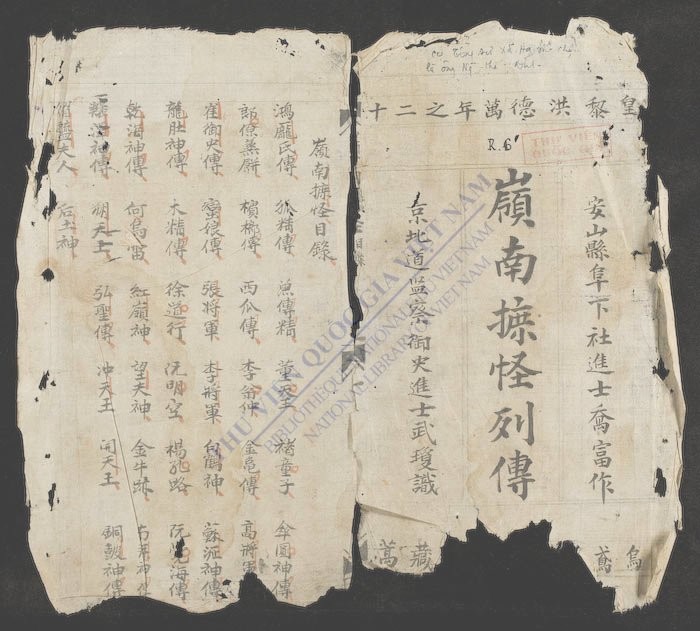 皇黎洪德萬年之二十
R.6
THƯ VIỆN
QUỐC GIA
安山縣阜下社進士喬富作
嶺南摭怪列傳
京北道監察御史進士武瓊識
烏鳶
藏萬
嶺南摭怪目錄
鴻龐氏傳 狐精傳 魚傳精 董天王 褚童子 傘圓神傳
郎僚蒸餅 檳榔傳 西瓜傳 李翁仲 金龜傳 高將軍
崔御史傳 蠻娘傳 張將軍 李將軍 白鶴神 蘇瀝神傳
龍肚神傳 木精傳 徐道行 阮明空 楊孔路 阮覺海傳
乾海神傳 何烏雷 紅嶺神 望夫神 金牛跡
神傳 朔天王 弘聖傳 冲天王 開天王 銅皷神傳
醯夫人 后土神
THƯ VIỆN QUỐC GIA VIỆT NAM
BIBLIOTHÈQUE NATIONALE DU VIETNAM
NATIONAL LIBRARY OF VIETNAM